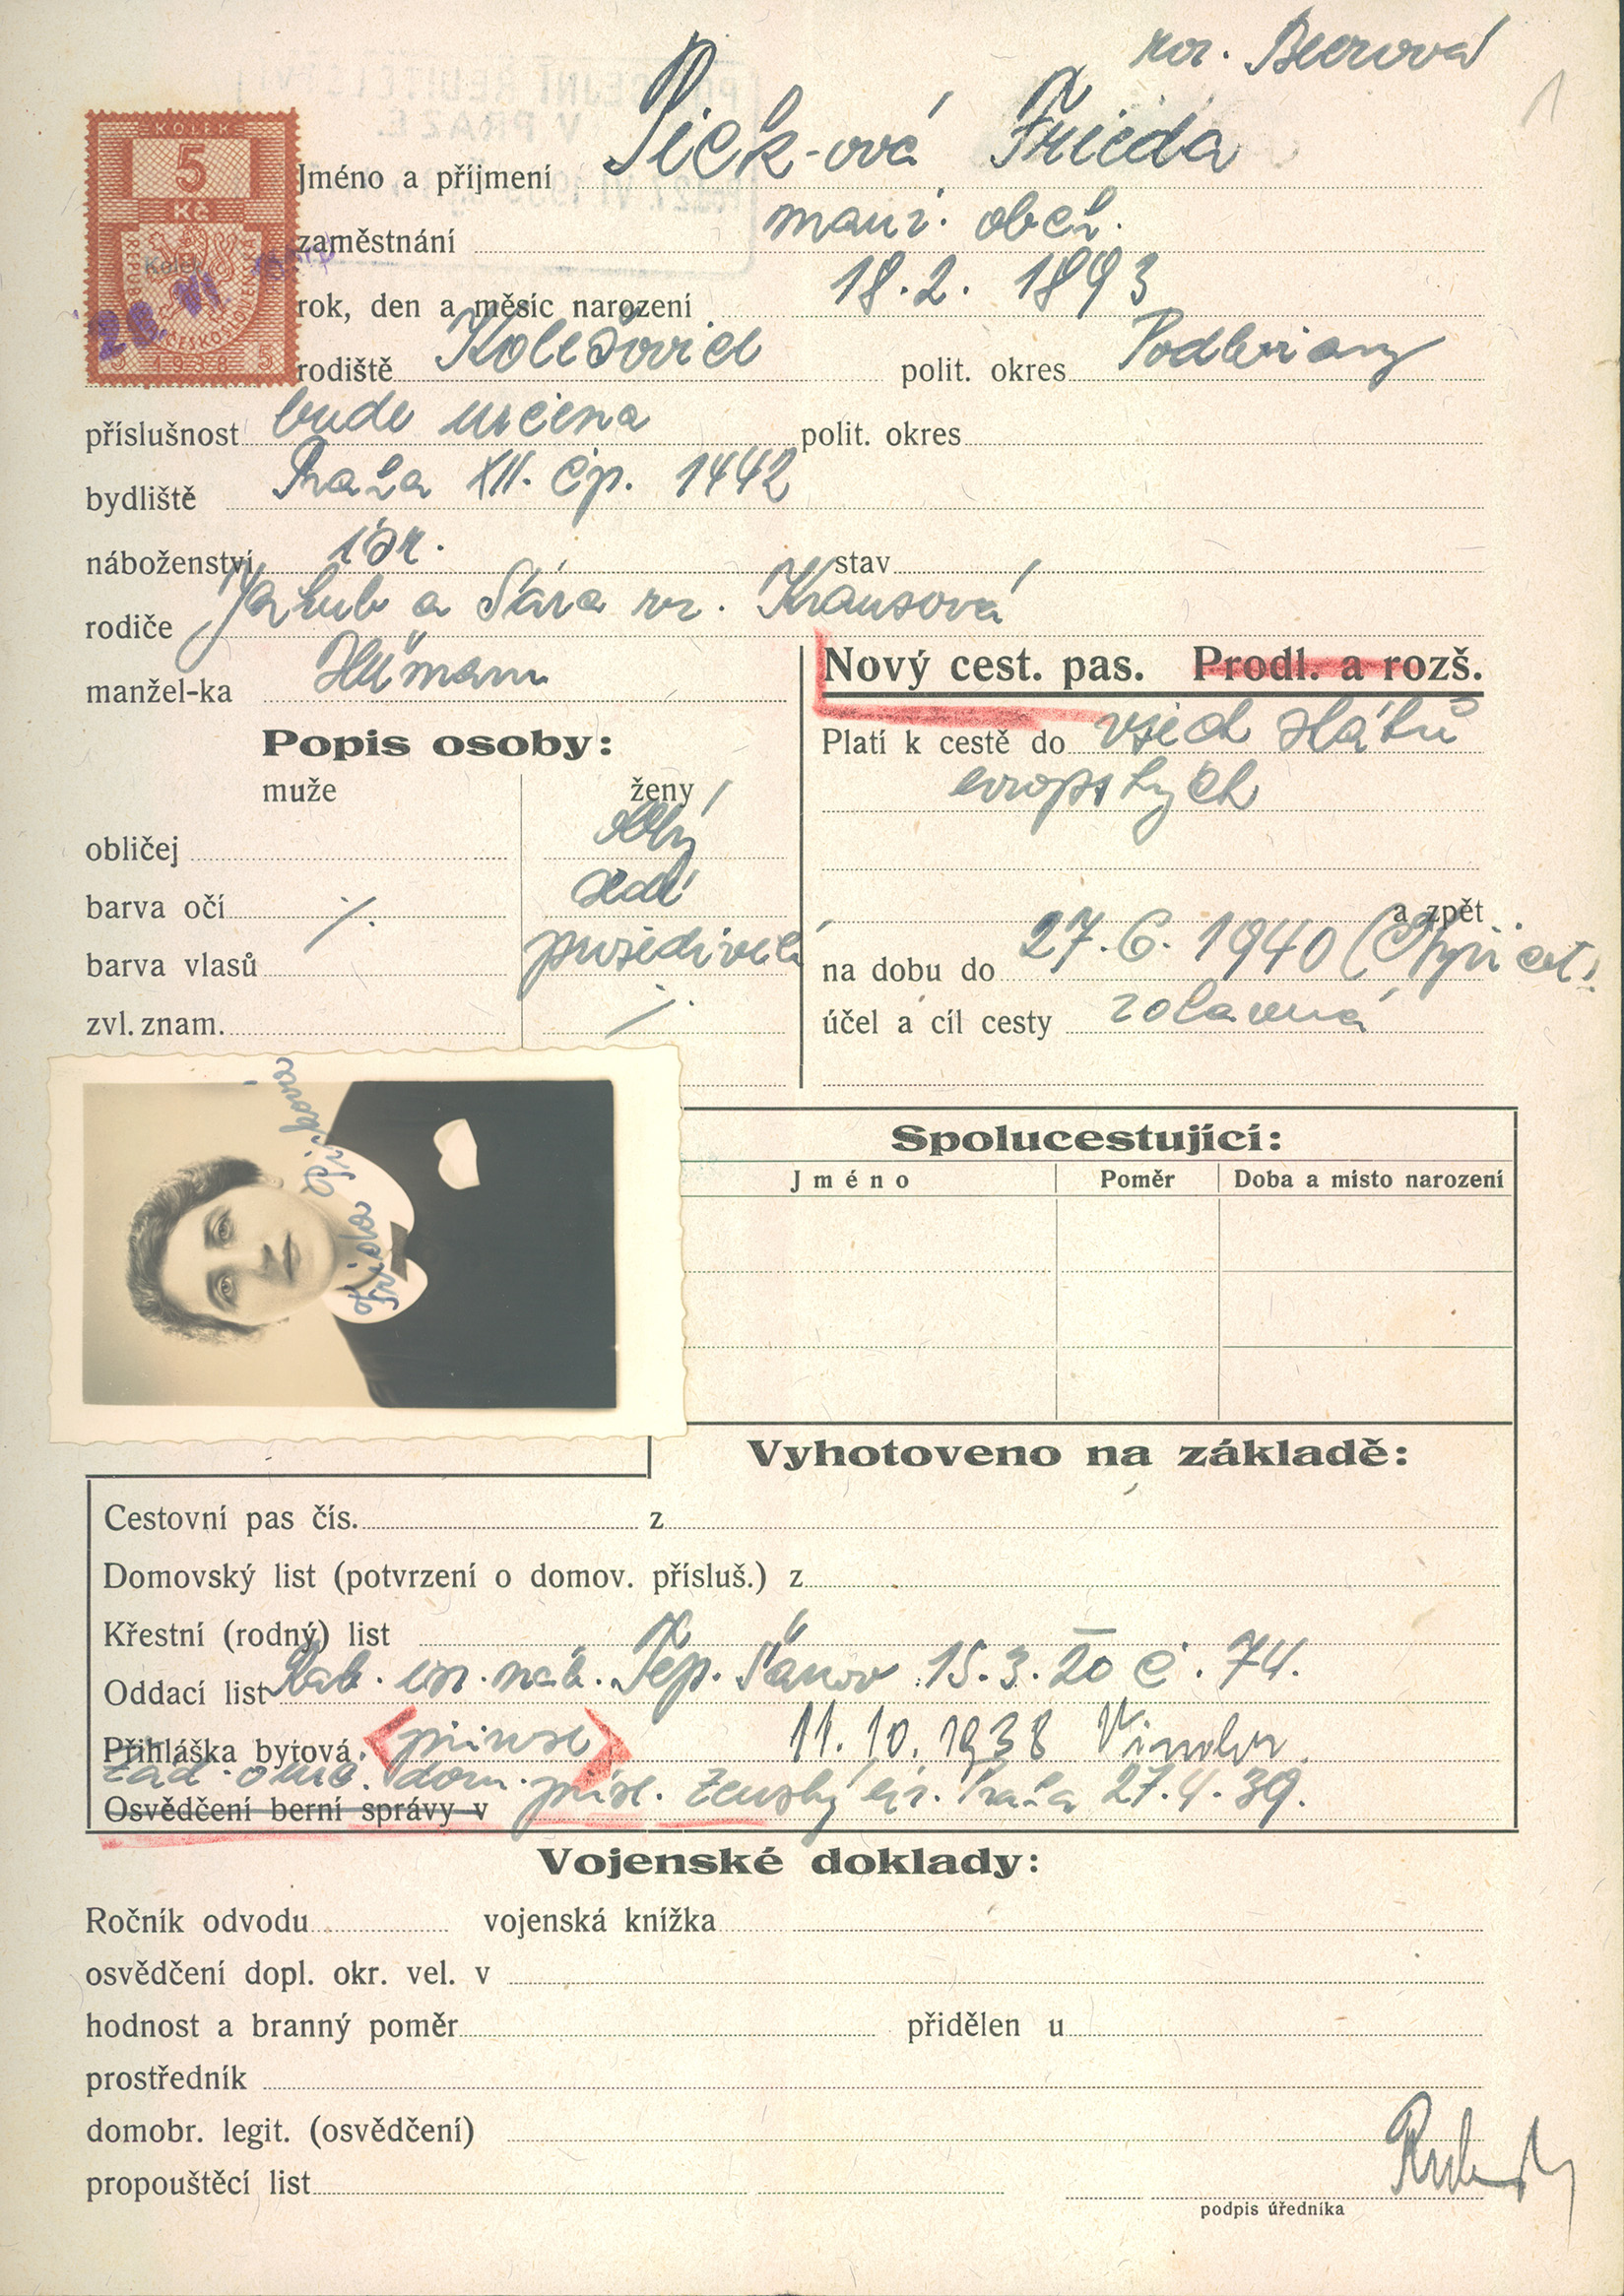 roz. Beerová
1
KOLEK
5
Kč
REPUBLIKA ČESKOSLOVENSKÁ
5 1938 5
Jméno a příjmení Pick-ová Frieda
zaměstnání manž. obch.
rok, den a měsíc narození 18. 2. 1893
rodiště Kolešovice polit. okres Podbořany
příslušnost bude určena polit. okres
bydliště Praha XII. čp. 1442
náboženství isr. stav
rodiče Jakub a Sára roz. Krausová
manžel-ka Heřmann
Nový cest. pas. Prodl. a rozš.
Popis osoby:
Platí k cestě do všech států
evropských
muže ženy
obličej
barva očí šedé
barva vlasů prošedivělé
zvl. znam.
a zpět
na dobu do 27. 6. 1940 (Čtyřicet)
účel a cíl cesty zotavená
Frida Picková
Spolucestující:
Jméno Poměr Doba a misto narození
Vyhotoveno na základě:
Cestovní pas čís. z
Domovský list (potvrzení o domov. přísluš.) z
Křestní (rodný) list
Oddací list Rab. isr. náb. Tep. Šanov 15. 3. 20 č. 74.
Přihláška bytová 11. 10. 1938 Vinohr.
žád. o dom. přísl. Zemský úř. Praha 27. 4. 39.
Osvědčení berní správy v
Vojenské doklady:
Ročník odvodu vojenská knížka
osvědčení dopl. okr. vel. v
hodnost a branný poměr přidělen u
prostředník
domobr. legit. (osvědčení)
propouštěcí list
podpis úředníka